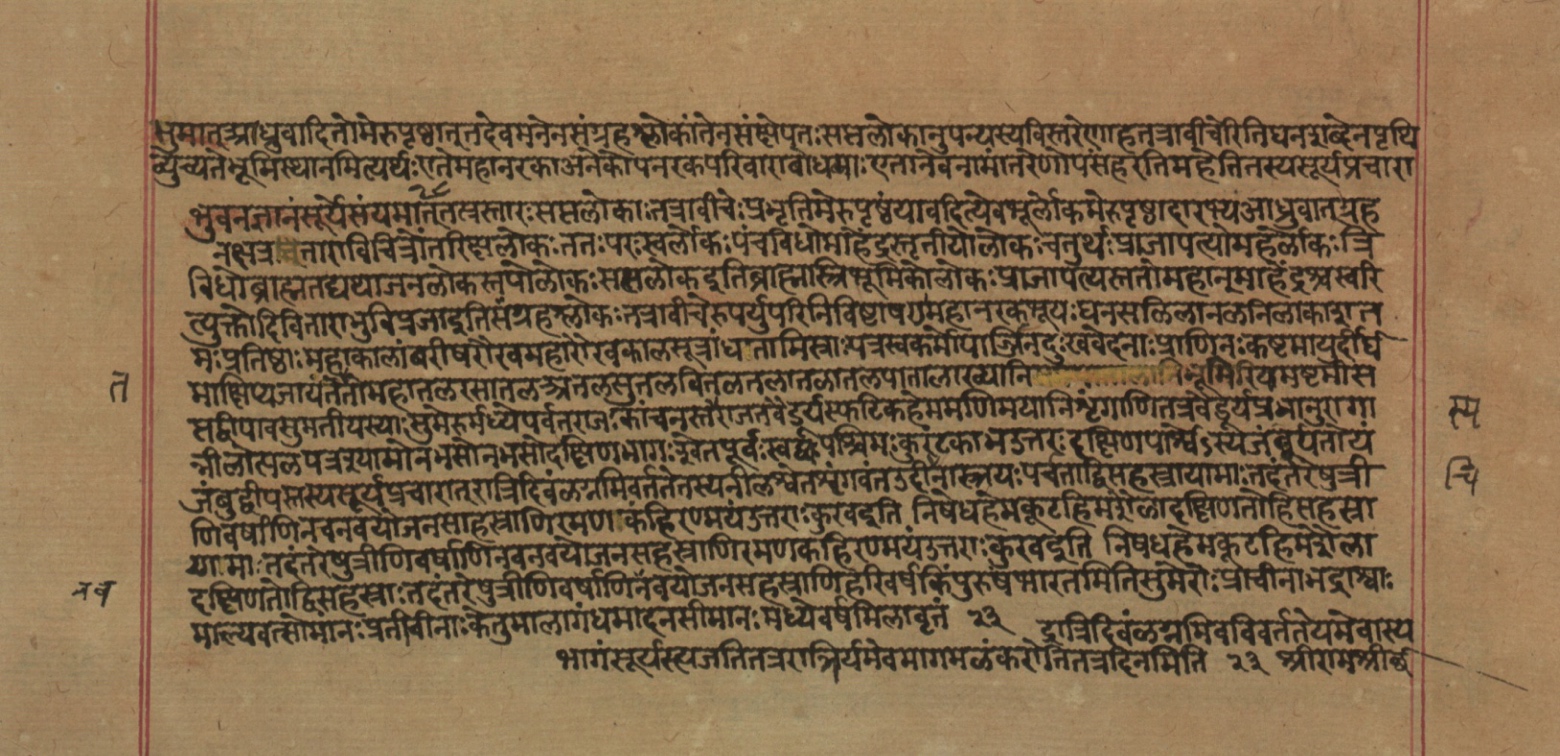 भुमात्आध्रुवादितोमेरुपृष्ठात्तदेवमनेनसंग्रहश्लोकांतेनसंक्षेपतःसप्तलोकानुपन्यस्यविस्तरेणाहतत्रावीचेरितिघनशब्देनपृथि
व्युच्यतेभूमिस्थानमित्यर्थःएतेमहानरकाअनेकोपनरकपरिवाराबोधव्याःएतानेवनामांतरेणोपसंहरतिमहेतितस्यसूर्यप्रचारा
भुवनज्ञानंसूर्येसंयमात् २८ तत्प्रस्तारःसप्तलोकाःतत्रावीचेःप्रभृतिमेरुपृष्ठंयावदित्येवभूर्लोकमेरुपृष्ठादारभ्यआध्रुवातग्रह
नक्षत्रताराविचित्रोंतरिक्षलोकःततःपरःस्वर्लोकःपंचविधोमाहेंद्रस्तृतीयोलोकःचतुर्थःप्राजापत्योमहर्लोकःत्रि
विधोब्राह्मतद्यथाजनळोकस्तपोळोकःसत्यळोकइतिब्राह्मस्त्रिभूमिकोलोकःप्राजापत्यस्ततोमहान्माहेंद्रश्चस्वरि
त्युक्तोदिविताराभुविप्रजाइतिसंग्रहश्लोकःतत्रावीचेरुपर्युपरिनिविष्टाषण्महानरकभूयःघनसळिलानळनिलाकाशत
मःप्रतिष्ठाःमहाकालांबरीषरौरवमहारौरवकालसूत्रांधतामिस्राःयत्रस्वकर्मोपार्जितदुःखवेदनाःप्राणिनःकष्टमायुर्दीर्घ
माक्षिप्यजायंतेततोमहातळरसातळअतळसुतळवितळतलातळातलपातालाख्यानिभूमिरियमष्टमीस
त
सद्वीपावसुमतीयस्याःसुमेरुर्मध्येपर्वतराजःकांचनस्तराजतवैडूर्यस्फटिकहेममणिमयानिशृंगाणितत्रवैडूर्यप्रभानुरागा
स्प
न्नीलोत्पळपत्रश्यामोनभसोनभसोदक्षिणभागःश्वेतपूर्वःस्वच्छःपश्चिमःकुरंटकाभउत्तरःदक्षिणपार्श्वेऽस्यजंबूर्यतोयं
जंबुद्वीपस्तस्यसूर्यप्रचारात्रात्रिदिवंळग्नमिवर्त्ततेतस्यनीळश्वेतशृंगवंतउदीनास्त्रयःपर्वताद्विसहस्रायामाःतदंतरेषुत्री
णिवर्षाणिनवनवयोजनसाहस्राणिरमणकंहिरण्मयंउत्तराःकुरवइति निषधहेमकूटहिमशैळादक्षिणतोहिसहस्रा
यामाःतदंतरेषुत्रीणिवर्षाणिनवनवयोजनसहस्राणिरमणकहिरण्मयंउत्तराःकुरवइति निषधहेमकूटहिमशैला
दक्षिणतोद्विसहस्राःतदंतरेषुत्रीणिवर्षाणिनवयोजनसहस्राणिहरिवर्षकिंपुरुषंभारतमितिसुमेरोःप्राचीनाभद्राश्वाः
नव
माल्यवत्सीमानःप्रतीचीनाःकेतुमालागंधमादनसीमानःमध्येवर्षमिलावृतं २३ द्रात्रिदिवंळग्नमिवविवर्त्ततेयमेवास्य
भागंसूर्यस्त्यजतितत्ररात्रिर्यमेवमागमळंकरोतितत्रदिनमिति २३ श्रीरामश्री